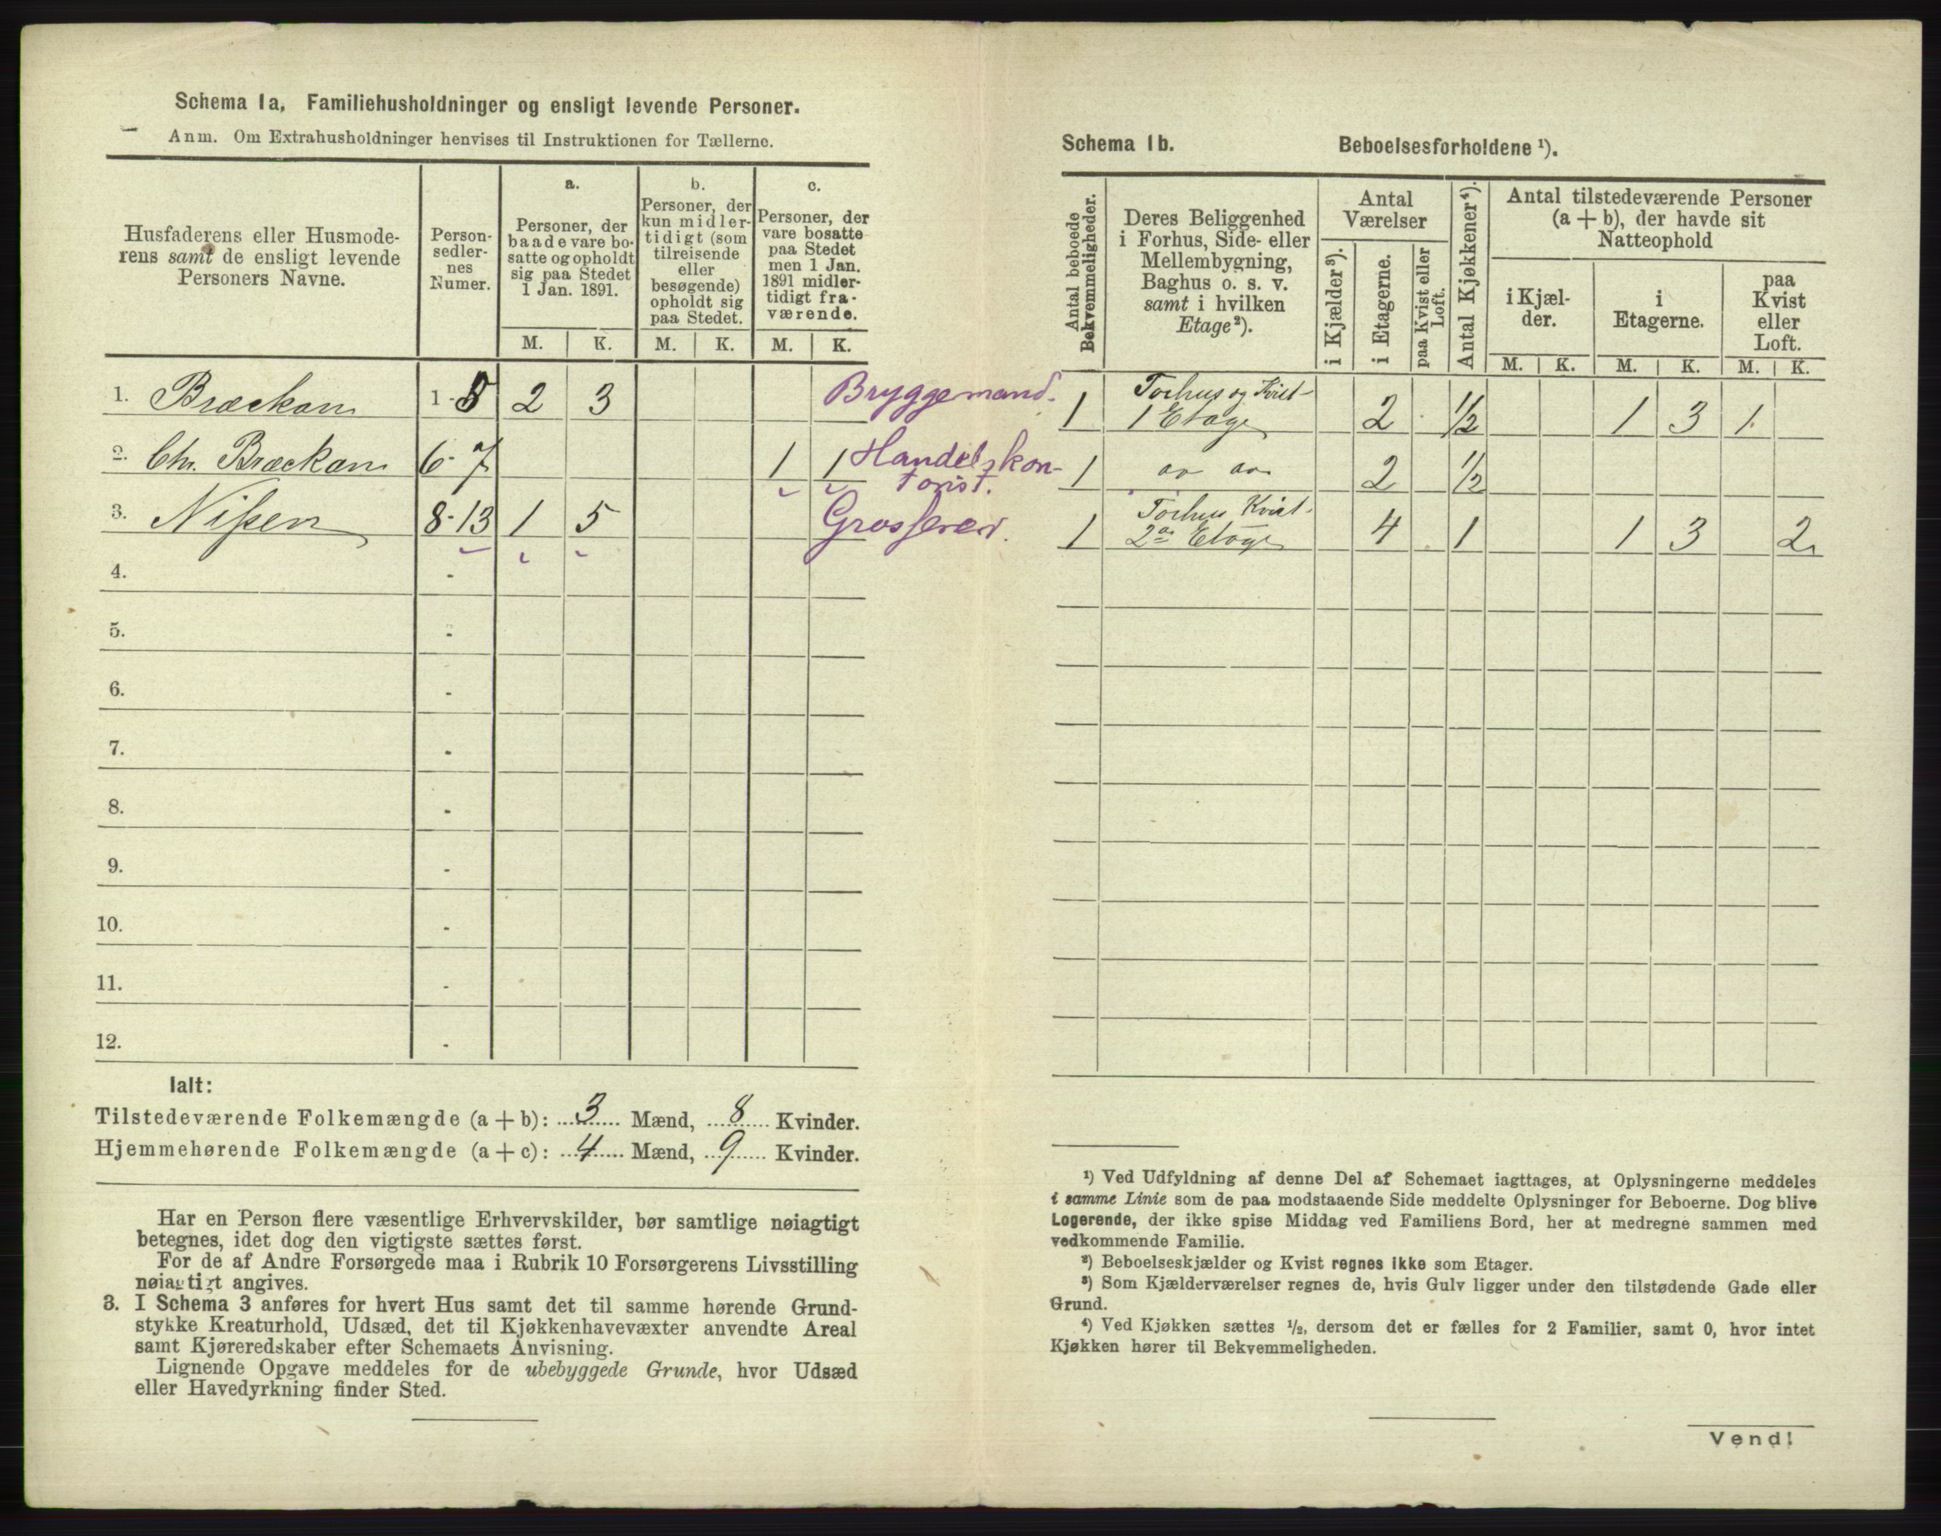 Schema 1a, Familiehusholdninger og ensligt levende Personer.
Anm. Om Extrahusholdninger henvises til Instruktionen for Tællerne.
Husfaderens eller Husmode-
rens samt de ensligt levende
Personers Navne.
Person-
sedler-
nes
Numer.
a.
Personer, der
baade vare bo-
satte og opholdt
sig paa Stedet
1 Jan. 1891.
b.
Personer, der
kun midler-
tidigt (som
tilreisende
eller
besøgende)
opholdt sig
paa Stedet.
c.
Personer, der
vare bosatte
paa Stedet
men 1 Jan.
1891 midler-
tidigt fra-
værende.
M. K. M. K. M. K.
1. Brækan 1-5 2 3 Bryggemand.
2. Chr. Brækan 6-7 1 1 Handelskon-
torist.
3. Nissen 8-13 1 5 Grosserer.
4. -
5. -
6. -
7. -
8. -
9. -
10. -
11. -
12. -
Ialt:
Tilstedeværende Folkemængde (a+b): 3 Mænd, 8 Kvinder.
Hjemmehørende Folkemængde (a+c): 4 Mænd, 9 Kvinder.
Har en Person flere væsentlige Erhvervskilder, bør samtlige nøiagtigt
betegnes, idet dog den vigtigste sættes først.
For de af Andre Forsørgede maa i Rubrik 10 Forsørgerens Livsstilling
nøiagtigt angives.
3. I Schema 3 anføres for hvert Hus samt det til samme hørende Grund-
stykke Kreaturhold, Udsæd, det til Kjøkkenhavevæxter anvendte Areal
samt Kjøreredskaber efter Schemaets Anvisning.
Lignende Opgave meddeles for de ubebyggede Grunde, hvor Udsæd
eller Havedyrkning finder Sted.
Schema 1b. Beboelsesforholdene ¹).
Antal beboede
Bekvemmeligheder.
Deres Beliggenhed
i Forhus, Side- eller
Mellembygning,
Baghus o. s. v.
samt i hvilken
Etage²).
Antal
Værelser
i Kjælder³).
i Etagerne.
paa Kvist eller
Loft.
Antal Kjøkkener⁴).
Antal tilstedeværende Personer
(a+b), der havde sit
Natteophold
i Kjæl-
der.
i
Etagerne.
paa
Kvist
eller
Loft.
M. K. M. K. M. K.
1 Forhus og Kvist
1 Etage 2 1/2 1 3 1
1 2 1/2
1 Forhus Kvist
2 Etage 4 1 1 3 2
¹) Ved Udfyldning af denne Del af Schemaet iagttages, at Oplysningerne meddeles
i samme Linie som de paa modstaaende Side meddelte Oplysninger for Beboerne. Dog blive
Logerende, der ikke spise Middag ved Familiens Bord, her at medregne sammen med
vedkommende Familie.
²) Beboelseskjælder og Kvist regnes ikke som Etager.
³) Som Kjælderværelser regnes de, hvis Gulv ligger under den tilstødende Gade eller
Grund.
⁴) Ved Kjøkken sættes ½, dersom det er fælles for 2 Familier, samt 0, hvor intet
Kjøkken hører til Bekvemmeligheden.
Vend!